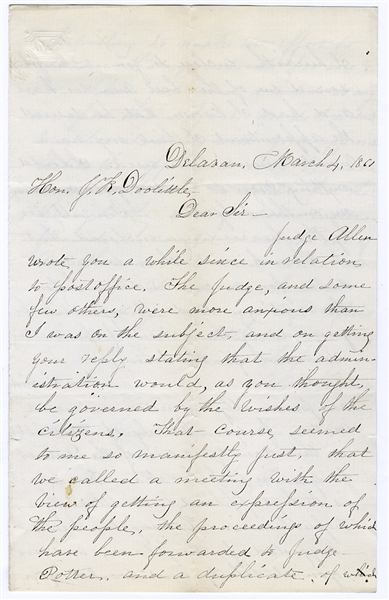 Delavan, March 4, 1861
Hon. J. R. Doolittle
Dear Sir—
Judge Allen
wrote you a while since in relation
to postoffice. The Judge, and some
few others, were more anxious than
I was on the subject, and on getting
your reply stating that the admin-
istration would, as you thought,
be governed by the wishes of the
citizens. That course, seemed
to me so manifestly just, that
we called a meeting with the
view of getting an expression of
the people, the proceedings of which
have been forwarded to Judge
Potter, and a duplicate of which